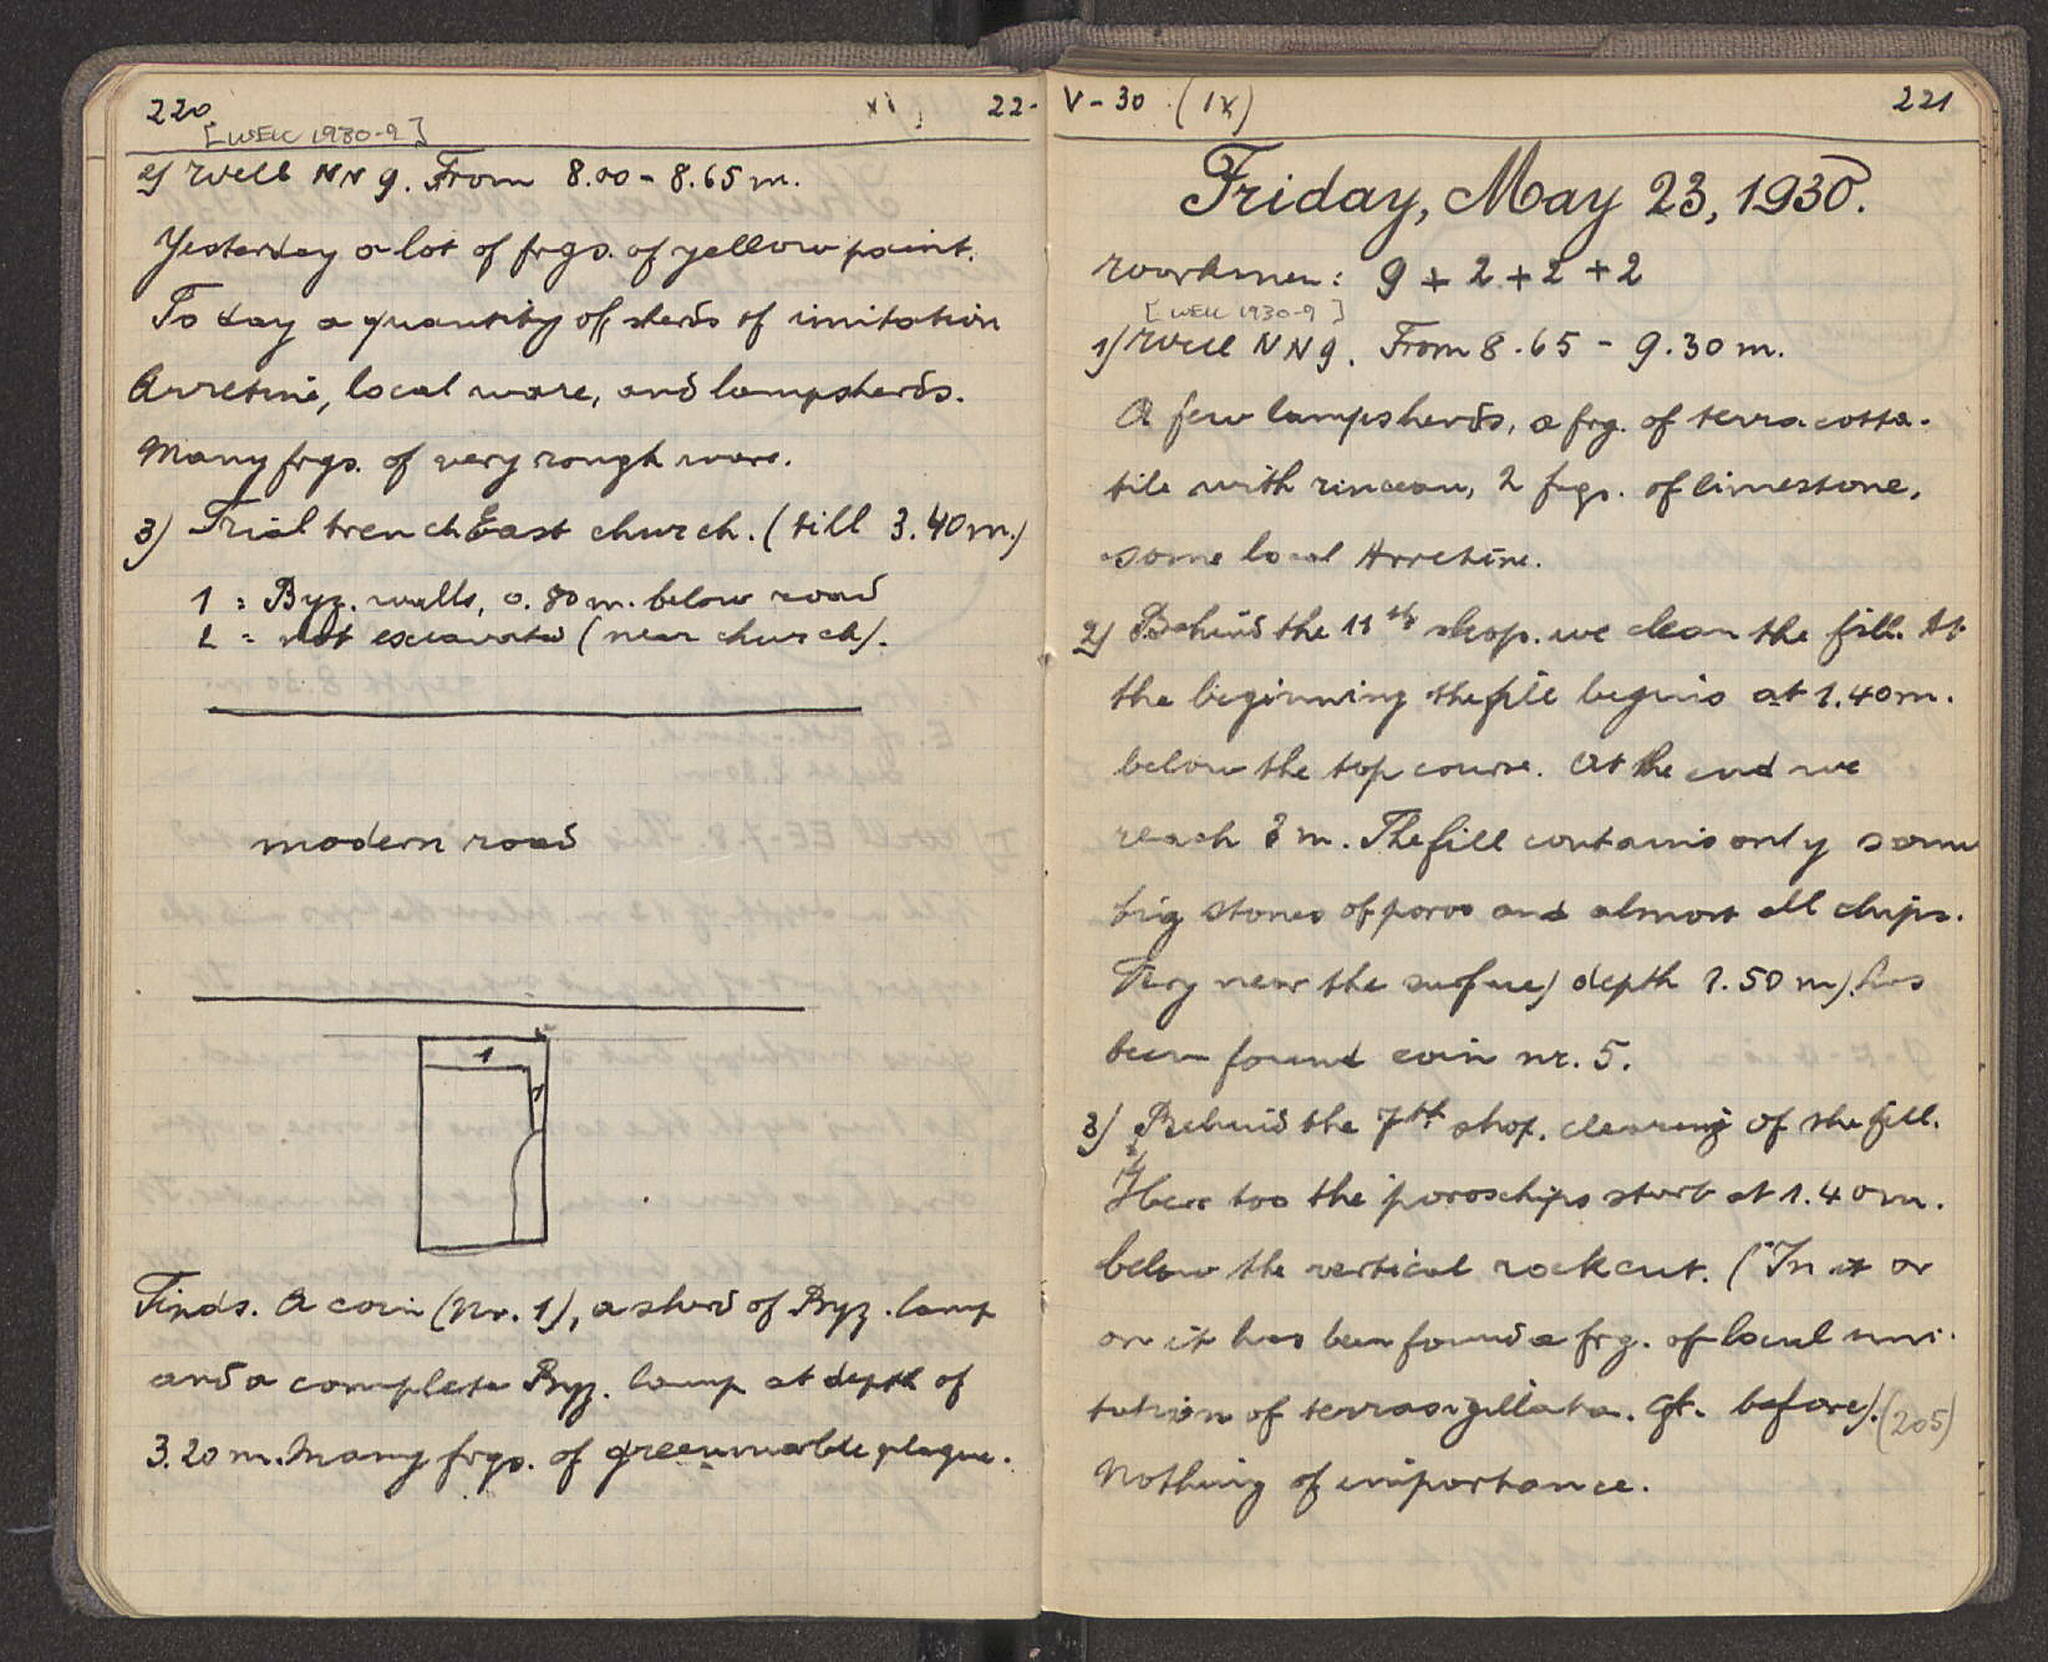 220
xi
22-
[WELL 1930-9]
2) Well NN 9. From 8.00 - 8.65 m.
Yesterday a lot of frgs. of yellow paint.
To day a quantity of sherds of imitation
Arretine, local ware, and lampsherds.
Many frgs. of very rough ware.
3) Trial trench East church. (till 3.40 m.)
1 = Byz. walls, 0.80 m. below road
2 = not excavated (near church).
modern road
1
1
Finds. A coin (Nr. 1), a sherd of Byz. lamp
and a complete Byz. lamp at depth of
3.20 m. Many frgs. of greenmarble plaque.
V - 30 (IX)
221
Friday, May 23, 1930.
Workmen: 9 + 2 + 2 + 2
[WELL 1930-9]
1) Well NN 9. From 8.65 - 9.30 m.
A few lampsherds, a frg. of terra cotta-
tile with rinceau, 2 frgs. of limestone,
some local Arretine.
2) Behind the 11th shop. we clean the fill. At
the beginning the fill begins at 1.40 m.
below the top course. At the end we
reach m. The fill contains only some
big stones of poros and almost all chips.
Very near the surface) depth 1.50 m). has
been found coin nr. 5.
3) Behind the 7th shop. clearing of the fill.
Here too the poroschips start at 1.40 m.
below the vertical rockcut. (In it or
on it has been found a frg. of local imi-
tation of terrasigillata. Cf. before). (205)
Nothing of importance.